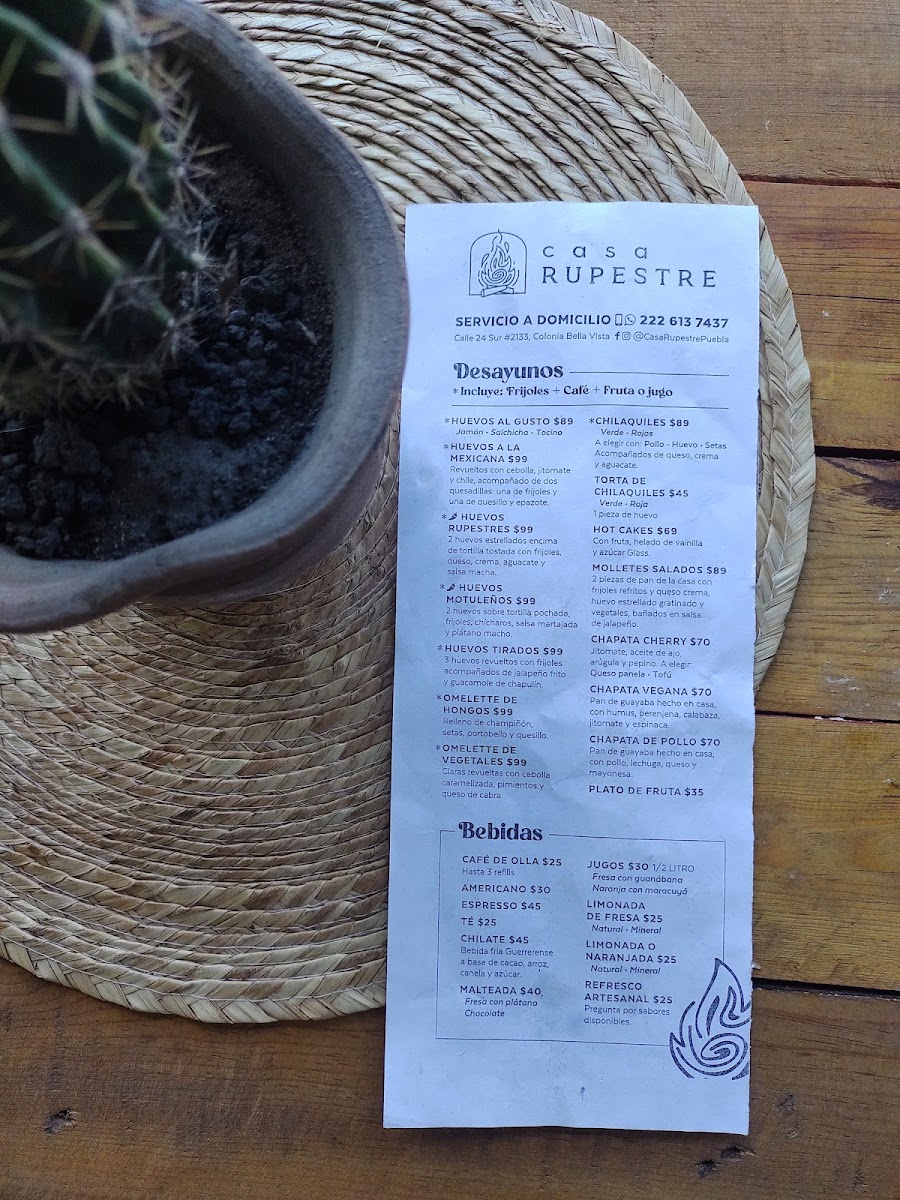 casa
RUPESTRE
SERVICIO A DOMICILIO 222 613 7437
Calle 24 Sur #2133, Colonia Bella Vista @CasaRupestrePuebla
Desayunos
*Incluye: Frijoles + Café + Fruta o jugo
*HUEVOS AL GUSTO $89
Jamón • Salchicha • Tocino
*HUEVOS A LA
MEXICANA $99
Revueltos con cebolla, jitomate
y chile, acompañado de dos
quesadillas: una de frijoles y
una de quesillo y epazote.
*HUEVOS
RUPESTRES $99
2 huevos estrellados encima
de tortilla tostada con frijoles,
queso, crema, aguacate y
salsa macha.
*HUEVOS
MOTULEÑOS $99
2 huevos sobre tortilla pochada,
frijoles, chícharos, salsa martajada
y plátano macho.
*HUEVOS TIRADOS $99
3 huevos revueltos con frijoles
acompañados de jalapeño frito
y guacamole de chapulín.
*OMELETTE DE
HONGOS $99
Relleno de champiñón,
setas, portobello y quesillo.
*OMELETTE DE
VEGETALES $99
Claras revueltas con cebolla
caramelizada, pimientos y
queso de cabra.
*CHILAQUILES $89
Verde • Rojos
A elegir con: Pollo • Huevo • Setas
Acompañados de queso, crema
y aguacate.
TORTA DE
CHILAQUILES $45
Verde • Roja
1 pieza de huevo
HOT CAKES $69
Con fruta, helado de vainilla
y azúcar Glass.
MOLLETES SALADOS $89
2 piezas de pan de la casa con
frijoles refritos y queso crema,
huevo estrellado gratinado y
vegetales, bañados en salsa
de jalapeño.
CHAPATA CHERRY $70
Jitomate, aceite de ajo,
arúgula y pepino. A elegir:
Queso panela • Tofú
CHAPATA VEGANA $70
Pan de guayaba hecho en casa,
con humus, berenjena, calabaza,
jitomate y espinaca.
CHAPATA DE POLLO $70
Pan de guayaba hecho en casa,
con pollo, lechuga, queso y
mayonesa.
PLATO DE FRUTA $35
Bebidas
CAFÉ DE OLLA $25
Hasta 3 refills
AMERICANO $30
ESPRESSO $45
TÉ $25
CHILATE $45
Bebida fría Guerrerense
a base de cacao, arroz,
canela y azúcar.
MALTEADA $40
Fresa con plátano
Chocolate
JUGOS $30 1/2 LITRO
Fresa con guanábana
Naranja con maracuyá
LIMONADA
DE FRESA $25
Natural • Mineral
LIMONADA O
NARANJADA $25
Natural • Mineral
REFRESCO
ARTESANAL $25
Pregunta por sabores
disponibles.